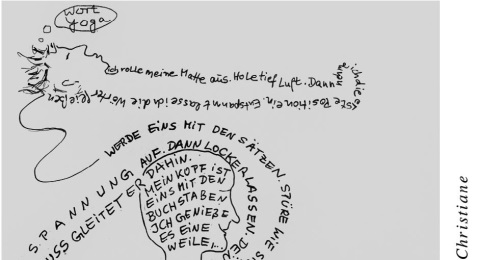 Wort
yoga
Ich rolle meine Matte aus. Hole tief Luft. Dann nehme ich die
erste Position ein. Entspannt lasse ich die Wörter fließen
WERDE EINS MIT DEN SÄTZEN. STÖRE WIE S
SPANNUNG AUF. DANN LOCKERLASSEN. DE
USS GLEITET ER DAHIN.
MEIN KOPF IST
EINS MIT DEN
BUCHSTABEN
ICH GENIEßE
ES EINE
WEILE...
Christiane